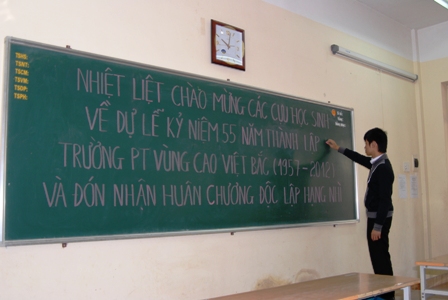 NHIỆT LIỆT CHÀO MỪNG CÁC CỰU HỌC SINH
VỀ DỰ LỄ KỶ NIỆM 55 NĂM THÀNH LẬP
TRƯỜNG PT VÙNG CAO VIỆT BẮC (1957-2012)
VÀ ĐÓN NHẬN HUÂN CHƯƠNG ĐỘC LẬP HẠNG NHÌ